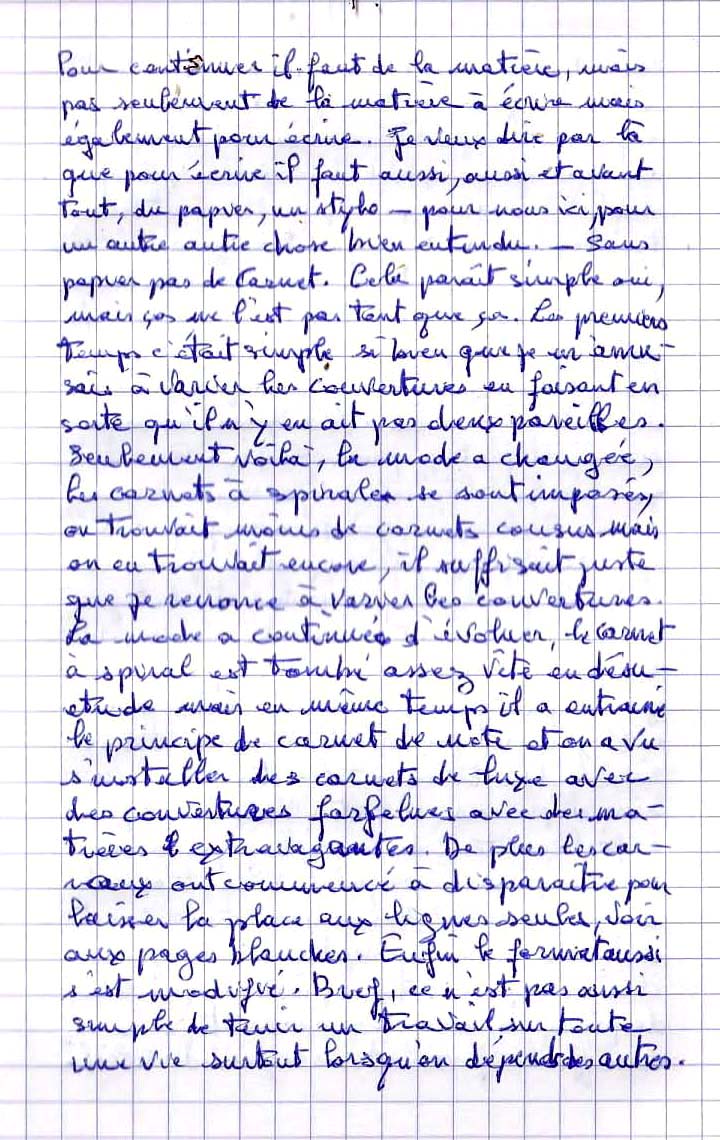 Pour continuer il faut de la matière, mais
pas seulement de la matière à écrire mais
également pour écrire. Je veux dire par là
que pour écrire il faut aussi, aussi et avant
tout, du papier, un stylo – pour nous ici, pour
un autre autre chose bien entendu. – Sans
papier pas de Carnet. Cela paraît simple oui,
mais ça ne l'est pas tant que ça. Les premiers
temps c'était simple si bien que je m'amu-
sais à varier les couvertures en faisant en
sorte qu'il n'y en ait pas deux pareilles.
Seulement voilà, la mode a changée,
les carnets à spirales se sont imposés,
on trouvait moins de carnets cousus mais
on en trouvait encore, il suffisait juste
que je renonce à varier les couvertures.
La mode a continuée d'évoluer, le carnet
à spiral est tombé assez vite en désu-
etude mais en même temps il a entrainé
le principe de carnet de note et on a vu
s'installer des carnets de luxe avec
des couvertures farfelues avec des ma-
tières extravagantes. De plus les car-
reaux ont commencé à disparaitre pour
laisser la place aux lignes seules, voir
aux pages blanches. Enfin le format aussi
s'est modifié. Bref, ce n'est pas aussi
simple de tenir un travail sur toute
une vie surtout lorsqu'on dépend des autres.